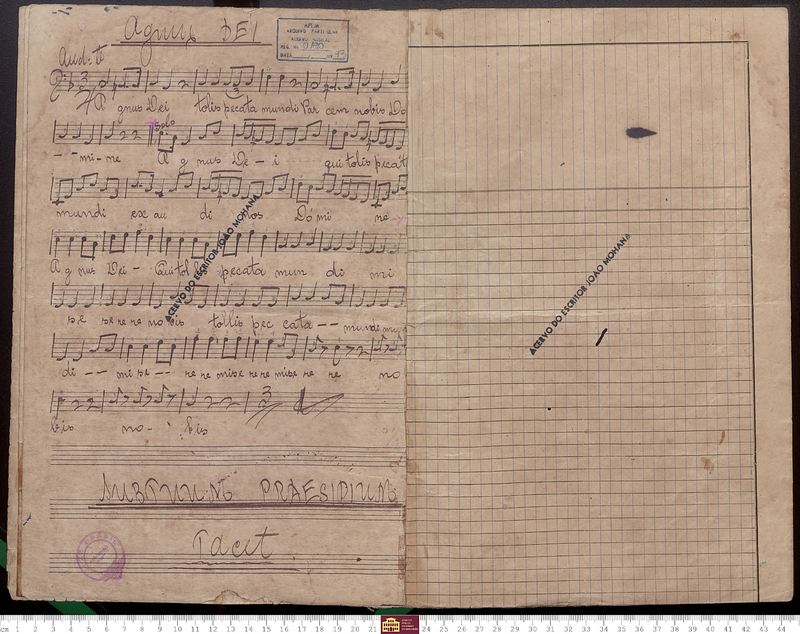 Agnus DEI
APEM
ARQUIVO PARTICULAR
And:te
A gnus Dei tolis pecata mundi Par cem nobis Do
Solo
- - mi-ne A g nus De - i qui tolis pecat
mundi ex au di nos Dómi ne
A g nus Dei - Qui tol lis pecata mun di mi
se re re no bis tollis pec cata - - munde
di - - mi se - - re re mise re re mise re re no
bis no - bis
SUB TUUM PRAESIDIUM
Tacet
ACERVO DO ESCRITOR JOÃO MOHANA
ACERVO DO ESCRITOR JOÃO MOHANA
cm 1 2 3 4 5 6 7 8 9 10 11 12 13 14 15 16 17 18 19 20 21 24 25 26 27 28 29 30 31 32 33 34 35 36 37 38 39 40 41 42 43 44